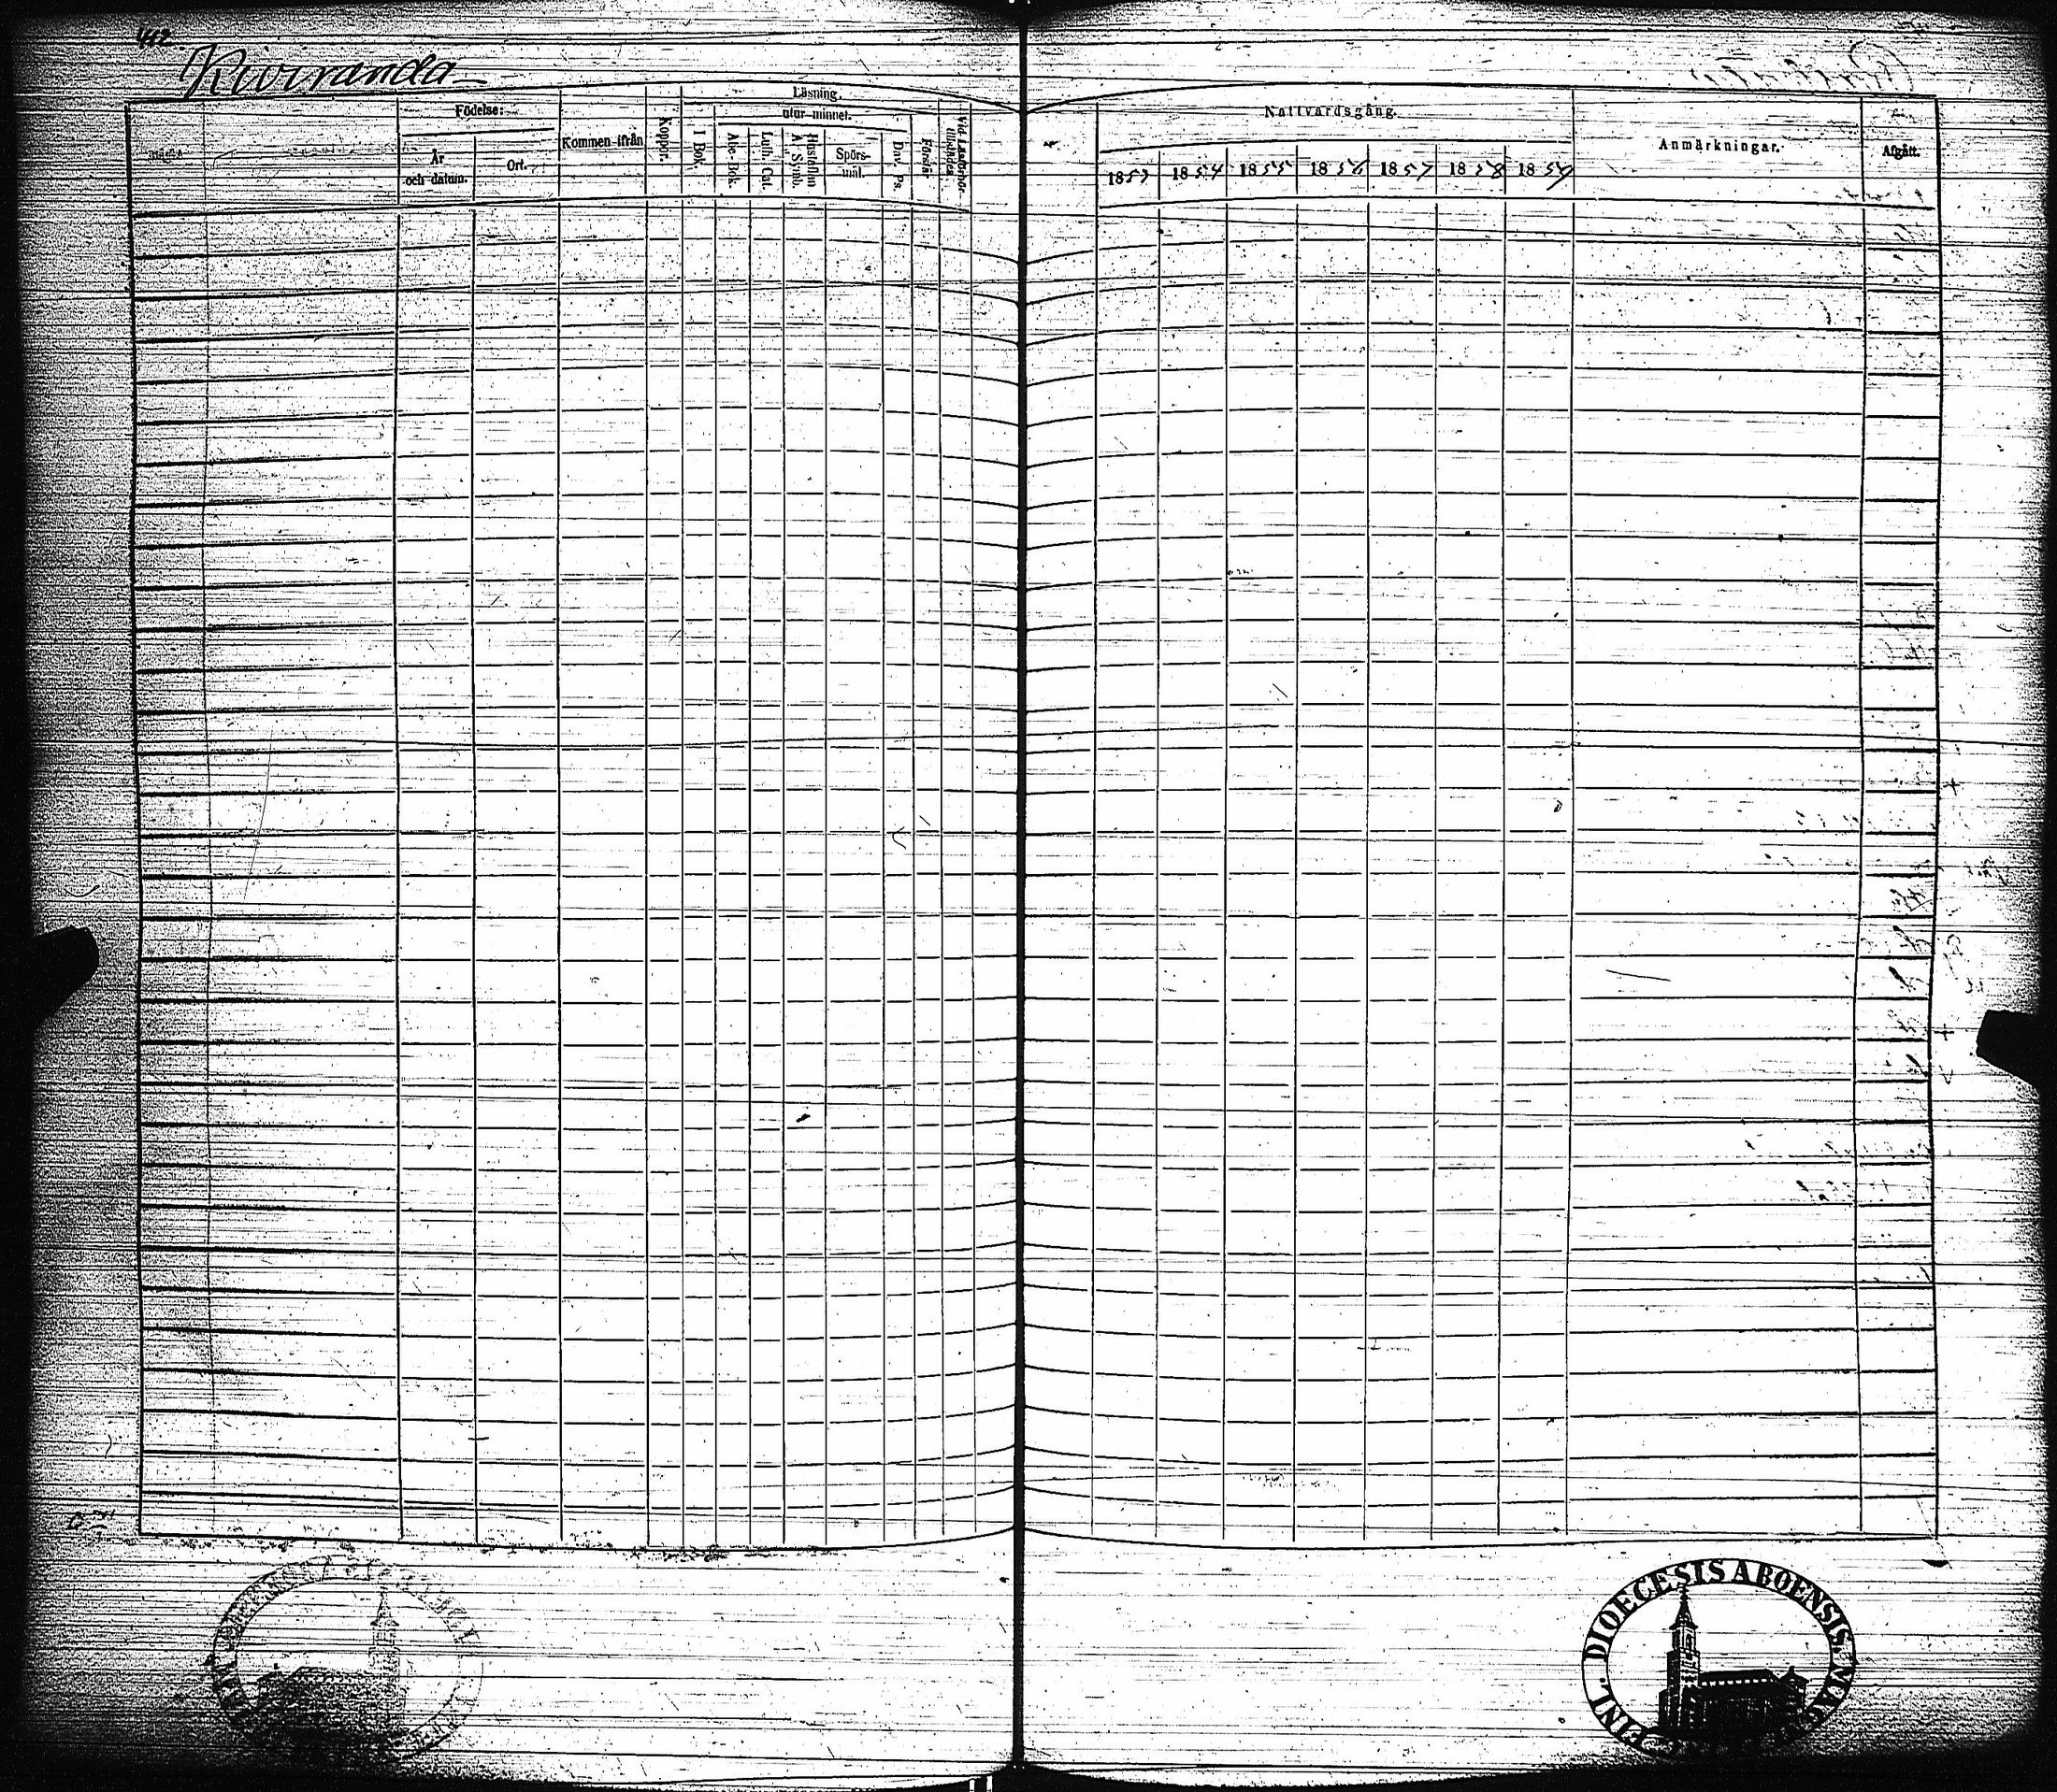 442.
Kiviranda
Födelse:
År
och datum.
Ort.
Kommen ifrån
Koppor.
Läsning.
utur minnet.
I Bok.
Abc-Bok.
Luth. Cat.
Hustaflan
A. Symb.
Spörs-
mål.
Dav. Ps.
Förstår
Nattvardsgång.
1853
1854
1855
1856
1857
1858
1859
Anmärkningar.
Afgått.
FINL. DIOECESIS ABOENSIS